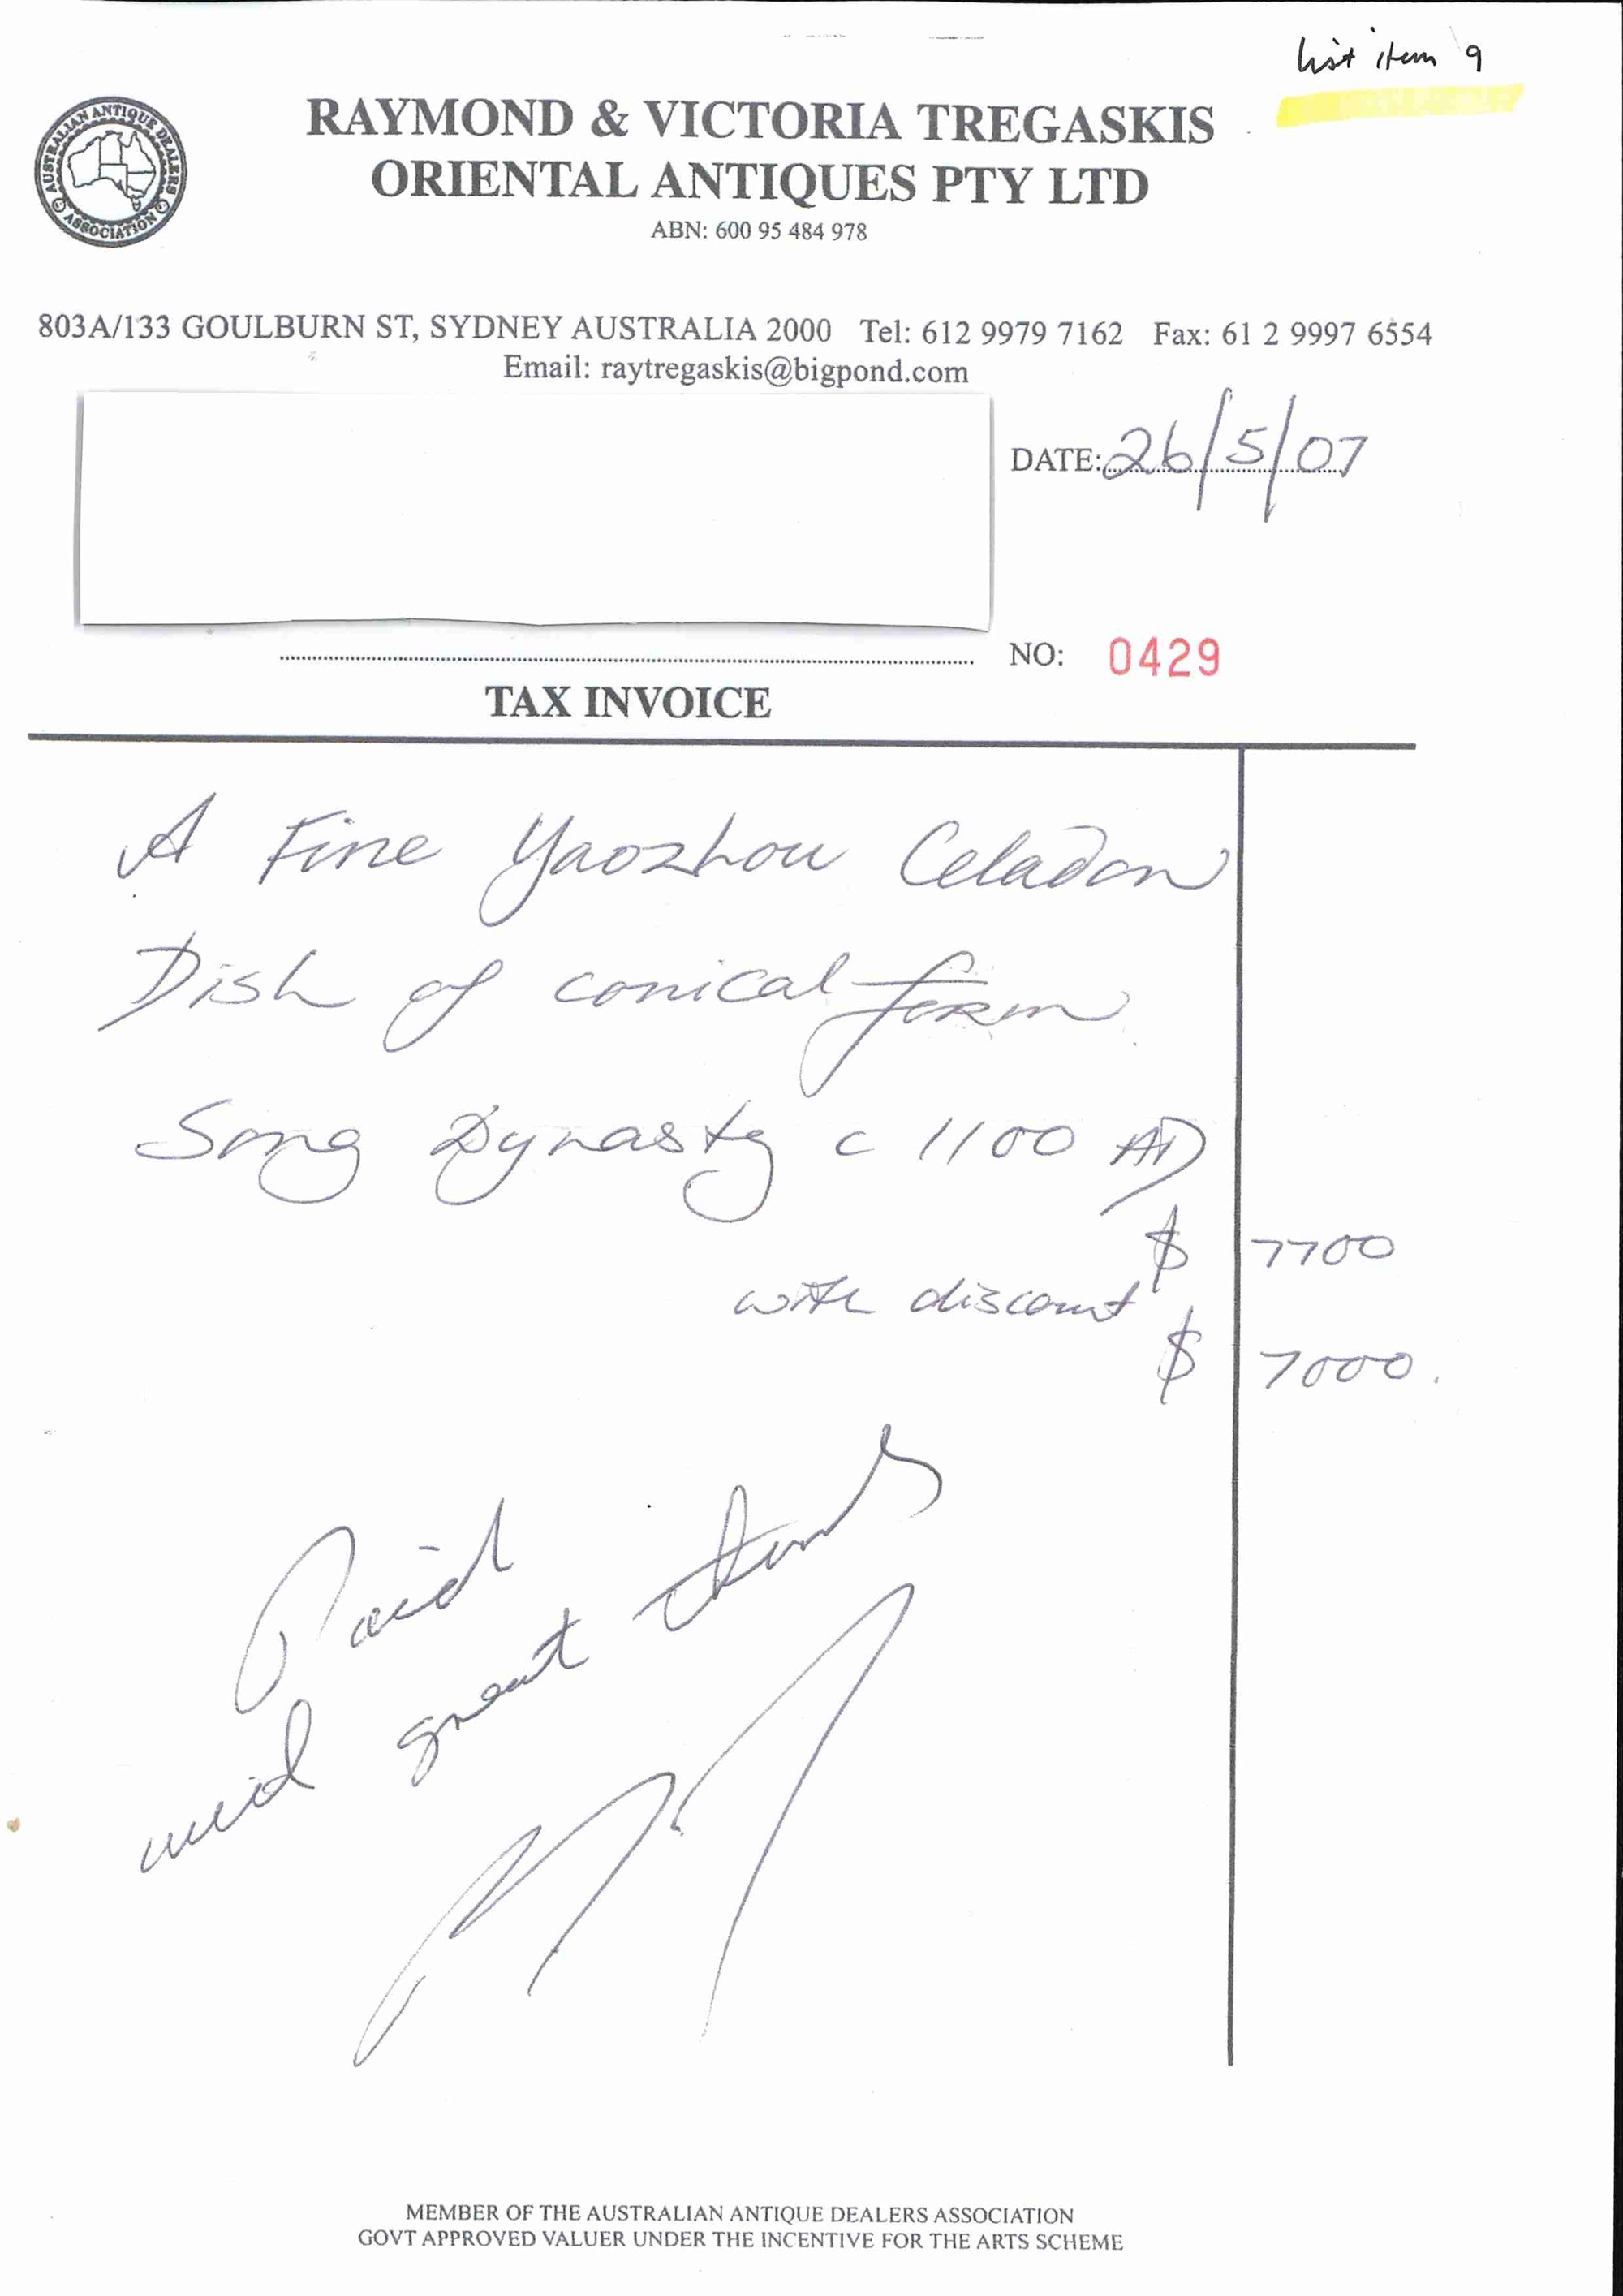 list item 9
AUSTRALIAN ANTIQUE DEALERS
ASSOCIATION
RAYMOND & VICTORIA TREGASKIS
ORIENTAL ANTIQUES PTY LTD
ABN: 600 95 484 978
803A/133 GOULBURN ST, SYDNEY AUSTRALIA 2000 Tel: 612 9979 7162 Fax: 61 2 9997 6554
Email: raytregaskis@bigpond.com
DATE: 26/5/07
NO: 0429
TAX INVOICE
A Fine Yaozhou Celadon
Dish of conical form
Song Dynasty c 1100 AD
$ 7700
with discount
$ 7000.
Paid
great
MEMBER OF THE AUSTRALIAN ANTIQUE DEALERS ASSOCIATION
GOVT APPROVED VALUER UNDER THE INCENTIVE FOR THE ARTS SCHEME